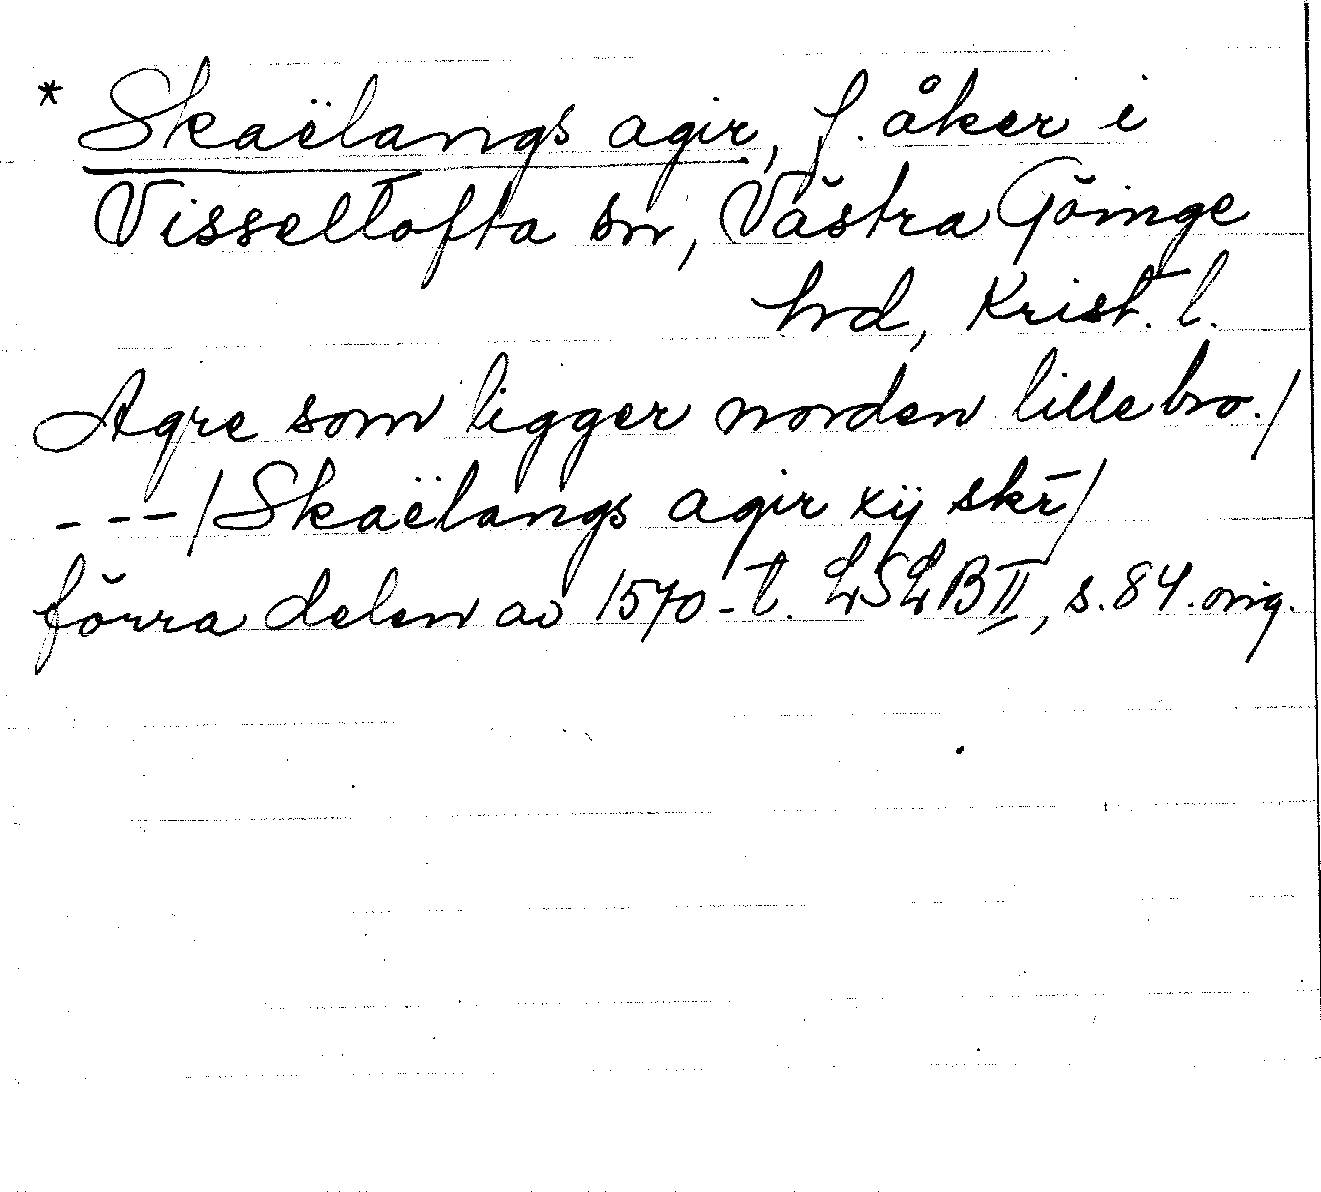 * Skaëlangs agir, f. åker i
Visseltofta sn, Västra Göinge
hrd, Krist. l.
Agre som ligger norden lille bro./
---/Skaëlangs agir xij skr̄/
förra delen av 1570-t. LSLB II, s. 84. orig.